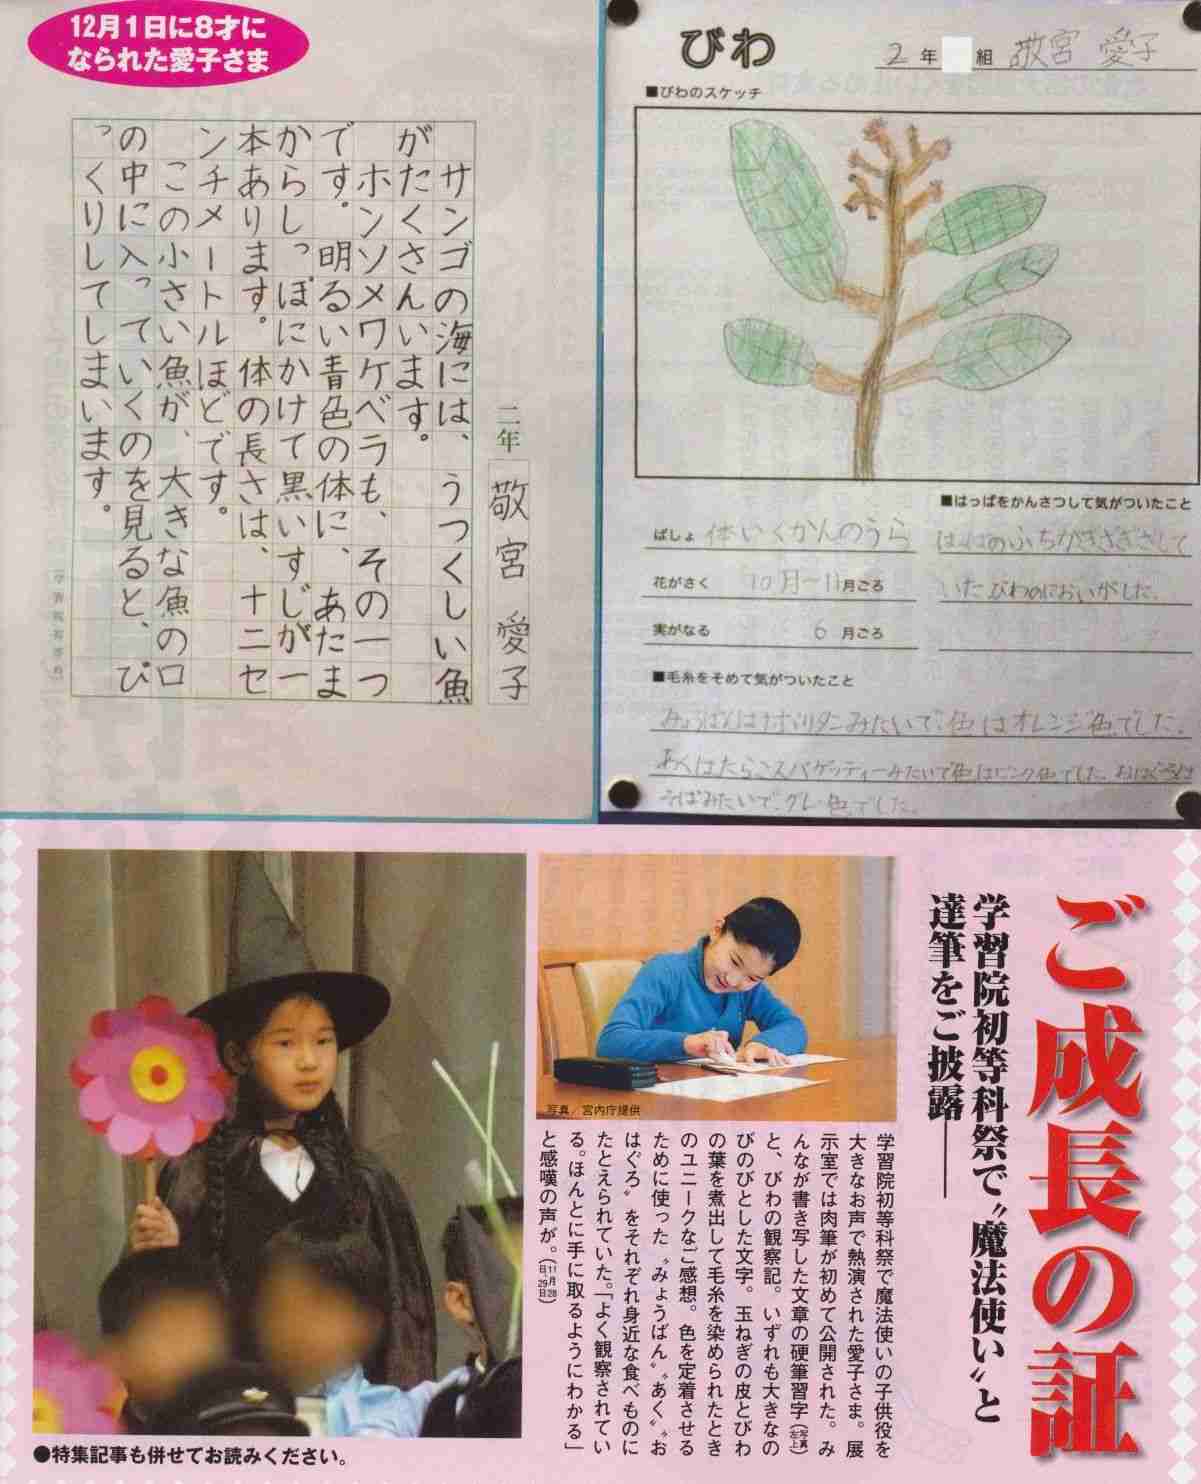 12月1日に8才に
なられた愛子さま
二年 敬宮 愛子
サンゴの海には、うつくしい魚
がたくさんいます。
ホンソメワケベラも、その一つ
です。明るい青色の体に、あたま
からしっぽにかけて黒いすじが一
本あります。体の長さは、十二セ
ンチメートルほどです。
この小さい魚が、大きな魚の口
の中に入っていくのを見ると、び
っくりしてしまいます。
びわ
2年 組 敬宮 愛子
■びわのスケッチ
■はっぱをかんさつして気がついたこと
ばしょ 体いくかんのうら
花がさく 10月〜11月ごろ
実がなる 6月ごろ
はっぱのふちがぎざぎざして
いた びわのにおいがした。
■毛糸をそめて気がついたこと
みょうばんはナポリタンみたいで、色はオレンジ色でした。
あくはたらこスパゲッティーみたいで色はピンク色でした。おはぐろは
そばみたいで、グレー色でした。
ご成長の証
学習院初等科祭で〝魔法使い〟と
達筆をご披露——
写真/宮内庁提供
学習院初等科祭で魔法使いの子供役を
大きなお声で熱演された愛子さま。展
示室では肉筆が初めて公開された。み
んなが書き写した文章の硬筆習字(写真左上)
と、びわの観察記。いずれも大きなの
びのびとした文字。玉ねぎの皮とびわ
の葉を煮出して毛糸を染められたとき
のユニークなご感想。色を定着させる
ために使った〝みょうばん〟〝あく〟〝お
はぐろ〟をそれぞれ身近な食べものに
たとえられていた。「よく観察されてい
る。ほんとに手に取るようにわかる」
と感嘆の声が。(11月28日、29日)
●特集記事も併せてお読みください。